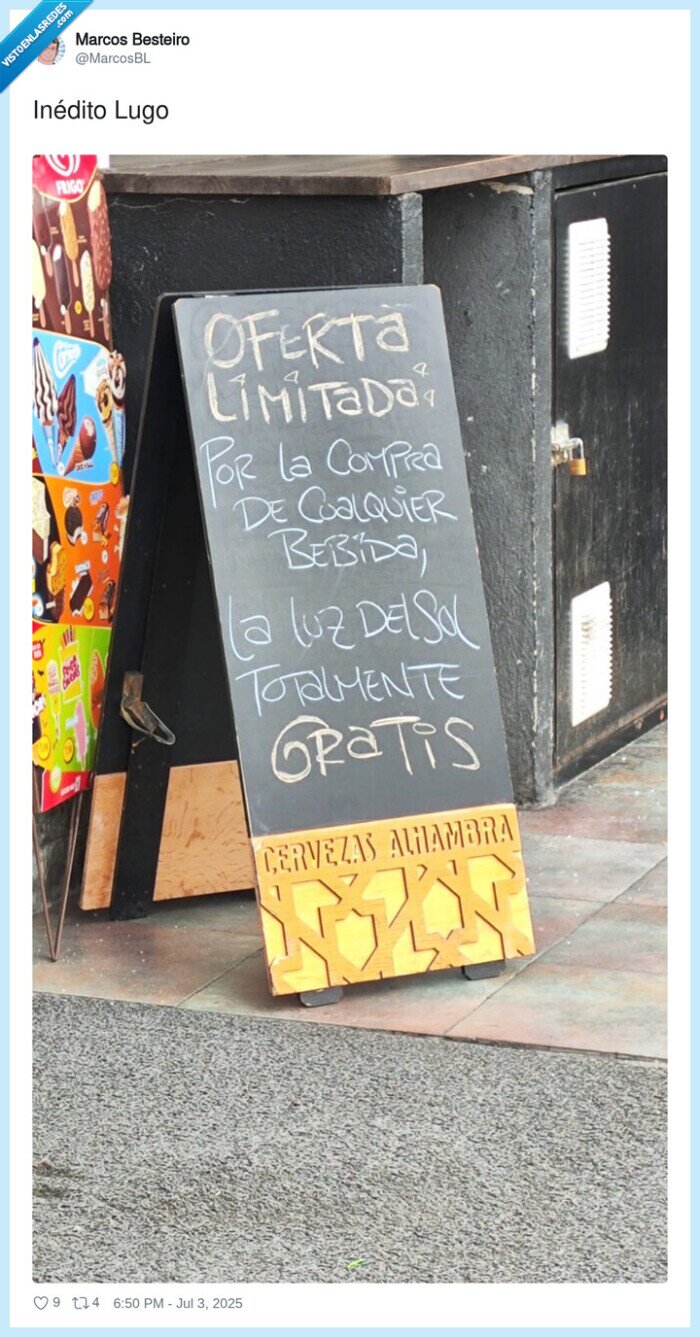 VISTOENLASREDES
.com
Marcos Besteiro
@MarcosBL
Inédito Lugo
FRIGO
OFERTA
LIMITADA:
POR LA COMPRA
DE CUALQUIER
BEBIDA,
LA LUZ DEL SOL
TOTALMENTE
GRATIS
CERVEZAS ALHAMBRA
9 4 6:50 PM - Jul 3, 2025